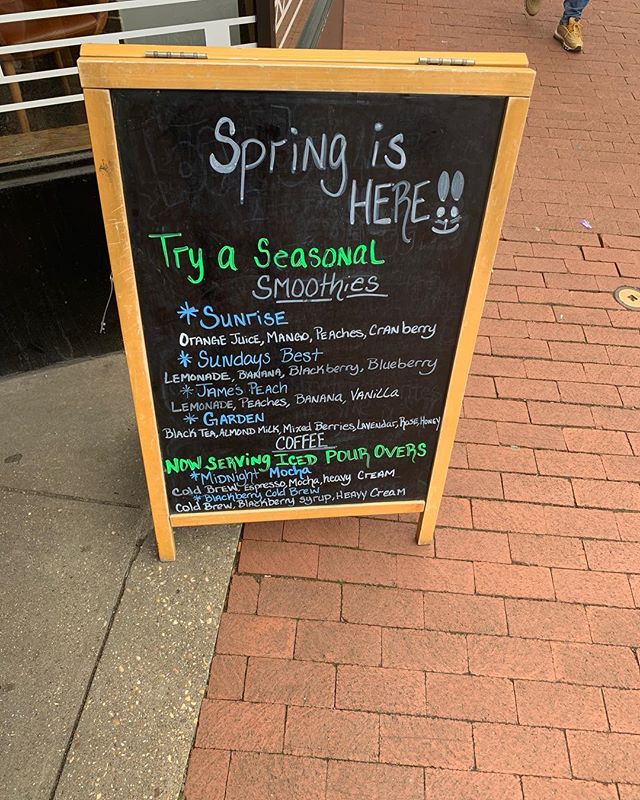 Spring is
HERE!!
Try a Seasonal
Smoothies
*Sunrise
Orange Juice, Mango, Peaches, Cranberry
*Sundays Best
Lemonade, Banana, Blackberry, Blueberry
*Jame's Peach
Lemonade, Peaches, Banana, Vanilla
*Garden
Black Tea, Almond Milk, Mixed Berries, Lavendar, Rose, Honey
COFFEE
Now Serving Iced Pour Overs
*Midnight Mocha
Cold Brew, Espresso, Mocha, heavy Cream
*Blackberry Cold Brew
Cold Brew, Blackberry syrup, Heavy Cream